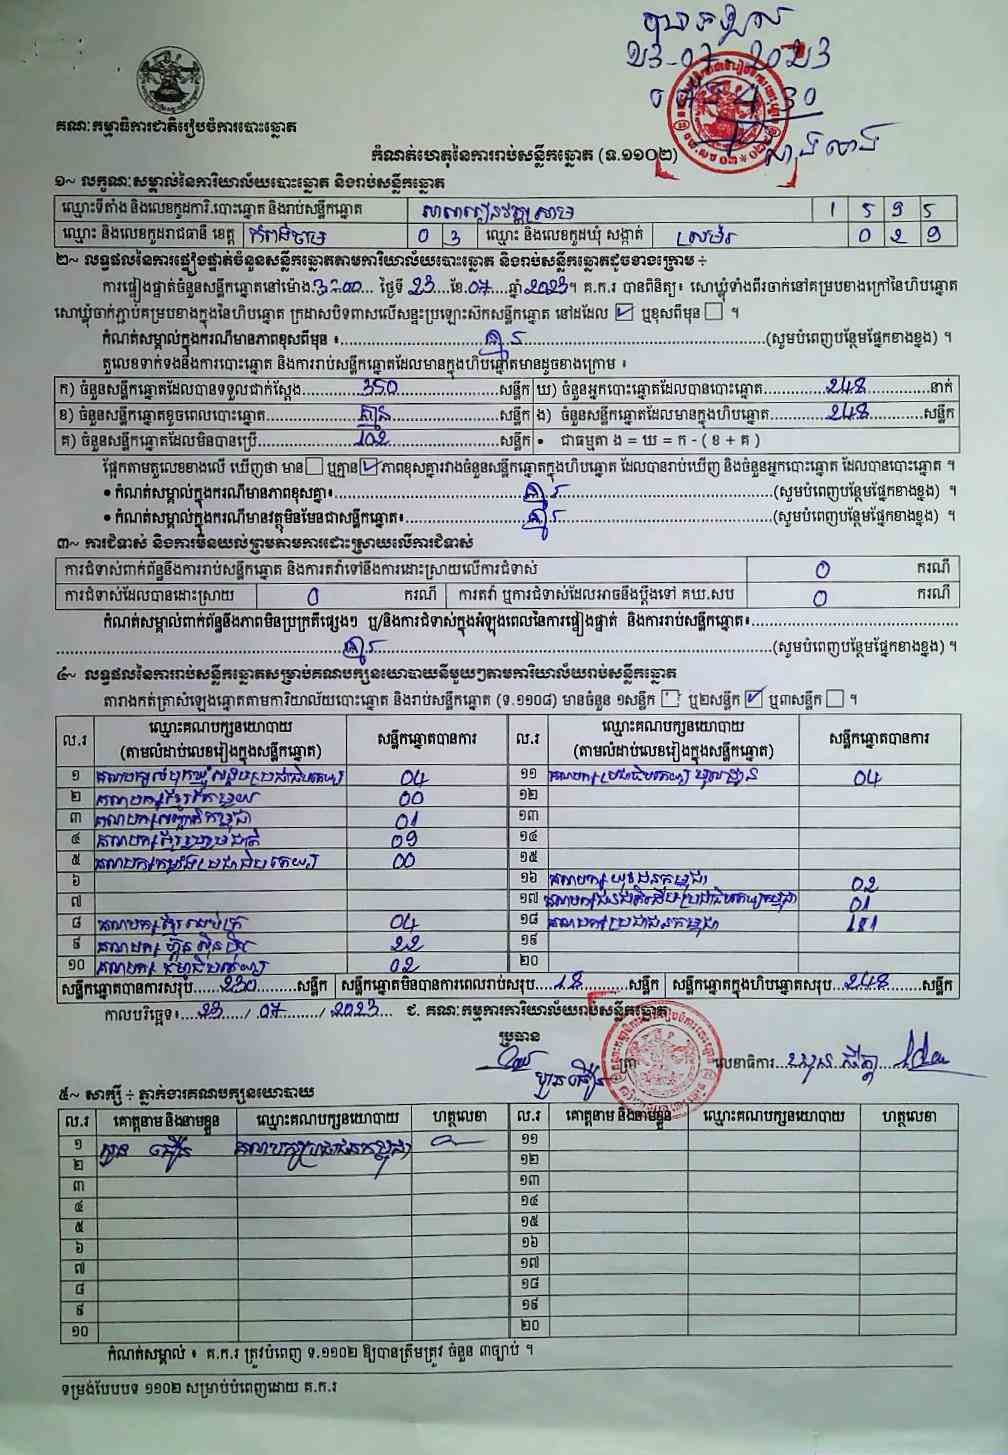 បានឃើញ
23-07-2023
គណៈកម្មាធិការជាតិរៀបចំការបោះឆ្នោត
កំណត់ហេតុនៃការរាប់សន្លឹកឆ្នោត (ទ.១១០២)
១~ លក្ខណៈសម្គាល់នៃការិយាល័យបោះឆ្នោត និងរាប់សន្លឹកឆ្នោត
ឈ្មោះទីតាំង និងលេខកូដការិ.បោះឆ្នោត និងរាប់សន្លឹកឆ្នោត 1 5 9 5
ឈ្មោះ និងលេខកូដរាជធានី ខេត្ត កំពង់ចាម 0 3 ឈ្មោះ និងលេខកូដឃុំ សង្កាត់ 0 2 9
២~ លទ្ធផលនៃការផ្ទៀងផ្ទាត់ចំនួនសន្លឹកឆ្នោតតាមការិយាល័យបោះឆ្នោត និងរាប់សន្លឹកឆ្នោតដូចខាងក្រោម ÷
ការផ្ទៀងផ្ទាត់ចំនួនសន្លឹកឆ្នោតនៅម៉ោង 3:00 ថ្ងៃទី 23 ខែ 07 ឆ្នាំ 2023។ គ.ក.រ បានពិនិត្យ៖ សោឃ្លុំទាំងពីរចាក់នៅគម្របខាងក្រៅនៃហិបឆ្នោត
សោឃ្លុំចាក់ភ្ជាប់គម្របខាងក្នុងនៃហិបឆ្នោត ក្រដាសបិទពាសលើសន្ទះប្រឡោះស៊កសន្លឹកឆ្នោត នៅដដែល ☑ ឬខុសពីមុន ☐ ។
កំណត់សម្គាល់ក្នុងករណីមានភាពខុសពីមុន ៖ គ្មាន (សូមបំពេញបន្ថែមផ្នែកខាងខ្នង) ។
តួលេខទាក់ទងនឹងការបោះឆ្នោត និងការរាប់សន្លឹកឆ្នោតដែលមានក្នុងហិបឆ្នោតមានដូចខាងក្រោម ៖
ក) ចំនួនសន្លឹកឆ្នោតដែលបានទទួលជាក់ស្តែង 350 សន្លឹក ឃ) ចំនួនអ្នកបោះឆ្នោតដែលបានបោះឆ្នោត 248 នាក់
ខ) ចំនួនសន្លឹកឆ្នោតខូចពេលបោះឆ្នោត គ្មាន សន្លឹក ង) ចំនួនសន្លឹកឆ្នោតដែលមានក្នុងហិបឆ្នោត 248 សន្លឹក
គ) ចំនួនសន្លឹកឆ្នោតដែលមិនបានប្រើ 102 សន្លឹក • ជាធម្មតា ង = ឃ = ក - ( ខ + គ )
ផ្អែកតាមតួលេខខាងលើ ឃើញថា មាន ☐ ឬគ្មាន ☑ ភាពខុសគ្នារវាងចំនួនសន្លឹកឆ្នោតក្នុងហិបឆ្នោត ដែលបានរាប់ឃើញ និងចំនួនអ្នកបោះឆ្នោត ដែលបានបោះឆ្នោត ។
• កំណត់សម្គាល់ក្នុងករណីមានភាពខុសគ្នា៖ គ្មាន (សូមបំពេញបន្ថែមផ្នែកខាងខ្នង) ។
• កំណត់សម្គាល់ក្នុងករណីមានវត្ថុមិនមែនជាសន្លឹកឆ្នោត៖ គ្មាន (សូមបំពេញបន្ថែមផ្នែកខាងខ្នង) ។
៣~ ការជំទាស់ និងការមិនយល់ព្រមតាមការដោះស្រាយលើការជំទាស់
ការជំទាស់ពាក់ព័ន្ធនឹងការរាប់សន្លឹកឆ្នោត និងការតវ៉ាទៅនឹងការដោះស្រាយលើការជំទាស់ 0 ករណី
ការជំទាស់ដែលបានដោះស្រាយ 0 ករណី ការតវ៉ា ឬការជំទាស់ដែលអាចនឹងប្តឹងទៅ គឃ.សប 0 ករណី
កំណត់សម្គាល់ពាក់ព័ន្ធនឹងភាពមិនប្រក្រតីផ្សេងៗ ឬ/និងការជំទាស់ក្នុងអំឡុងពេលនៃការផ្ទៀងផ្ទាត់ និងការរាប់សន្លឹកឆ្នោត៖
គ្មាន (សូមបំពេញបន្ថែមផ្នែកខាងខ្នង) ។
៤~ លទ្ធផលនៃការរាប់សន្លឹកឆ្នោតសម្រាប់គណបក្សនយោបាយនីមួយៗតាមការិយាល័យរាប់សន្លឹកឆ្នោត
តារាងកត់ត្រាសំឡេងឆ្នោតតាមការិយាល័យបោះឆ្នោត និងរាប់សន្លឹកឆ្នោត (ទ.១១០៨) មានចំនួន ១សន្លឹក ☐ ឬ២សន្លឹក ☑ ឬ៣សន្លឹក ☐ ។
ល.រ ឈ្មោះគណបក្សនយោបាយ (តាមលំដាប់លេខរៀងក្នុងសន្លឹកឆ្នោត) សន្លឹកឆ្នោតបានការ ល.រ ឈ្មោះគណបក្សនយោបាយ (តាមលំដាប់លេខរៀងក្នុងសន្លឹកឆ្នោត) សន្លឹកឆ្នោតបានការ
១ គណបក្សសំបុកឃ្មុំសង្គមប្រជាធិបតេយ្យ 04 ១១ គណបក្សប្រជាធិបតេយ្យមូលដ្ឋាន 04
២ គណបក្សខ្មែរតែមួយ 00 ១២
៣ គណបក្សសញ្ជាតិកម្ពុជា 01 ១៣
៤ គណបក្សខ្មែររួបរួមជាតិ 09 ១៤
៥ គណបក្សកម្លាំងប្រជាធិបតេយ្យ 00 ១៥
៦ ១៦ គណបក្សយុវជនកម្ពុជា 02
៧ ១៧ គណបក្សជនជាតិដើមប្រជាធិបតេយ្យកម្ពុជា 01
៨ គណបក្សខ្មែរអភិរក្ស 04 ១៨ គណបក្សប្រជាជនកម្ពុជា 181
៩ គណបក្សហ៊្វុនស៊ិនប៉ិច 22 ១៩
១០ គណបក្សធម្មាធិបតេយ្យ 02 ២០
សន្លឹកឆ្នោតបានការសរុប 230 សន្លឹក សន្លឹកឆ្នោតមិនបានការពេលរាប់សរុប 18 សន្លឹក សន្លឹកឆ្នោតក្នុងហិបឆ្នោតសរុប 248 សន្លឹក
កាលបរិច្ឆេទ៖ 23 / 07 / 2023 ជ. គណៈកម្មការការិយាល័យរាប់សន្លឹកឆ្នោត
ប្រធាន
លេខាធិការ
៥~ សាក្សី ÷ ភ្នាក់ងារគណបក្សនយោបាយ
ល.រ គោត្តនាម និងនាមខ្លួន ឈ្មោះគណបក្សនយោបាយ ហត្ថលេខា ល.រ គោត្តនាម និងនាមខ្លួន ឈ្មោះគណបក្សនយោបាយ ហត្ថលេខា
១ គណបក្សប្រជាជនកម្ពុជា ១១
២ ១២
៣ ១៣
៤ ១៤
៥ ១៥
៦ ១៦
៧ ១៧
៨ ១៨
៩ ១៩
១០ ២០
កំណត់សម្គាល់ ៖ គ.ក.រ ត្រូវបំពេញ ទ.១១០២ ឱ្យបានត្រឹមត្រូវ ចំនួន ៣ច្បាប់ ។
ទម្រង់បែបបទ ១១០២ សម្រាប់បំពេញដោយ គ.ក.រ